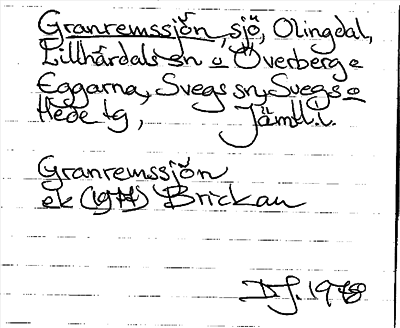 Granremssjön, sjö, Olingdal,
Lillhärdals sn o Överberg o
Eggarna, Svegs sn, Svegs o
Hede tg, Jämtl. l.
Granremssjön
ek (1977) Brickan
D.J. 1978